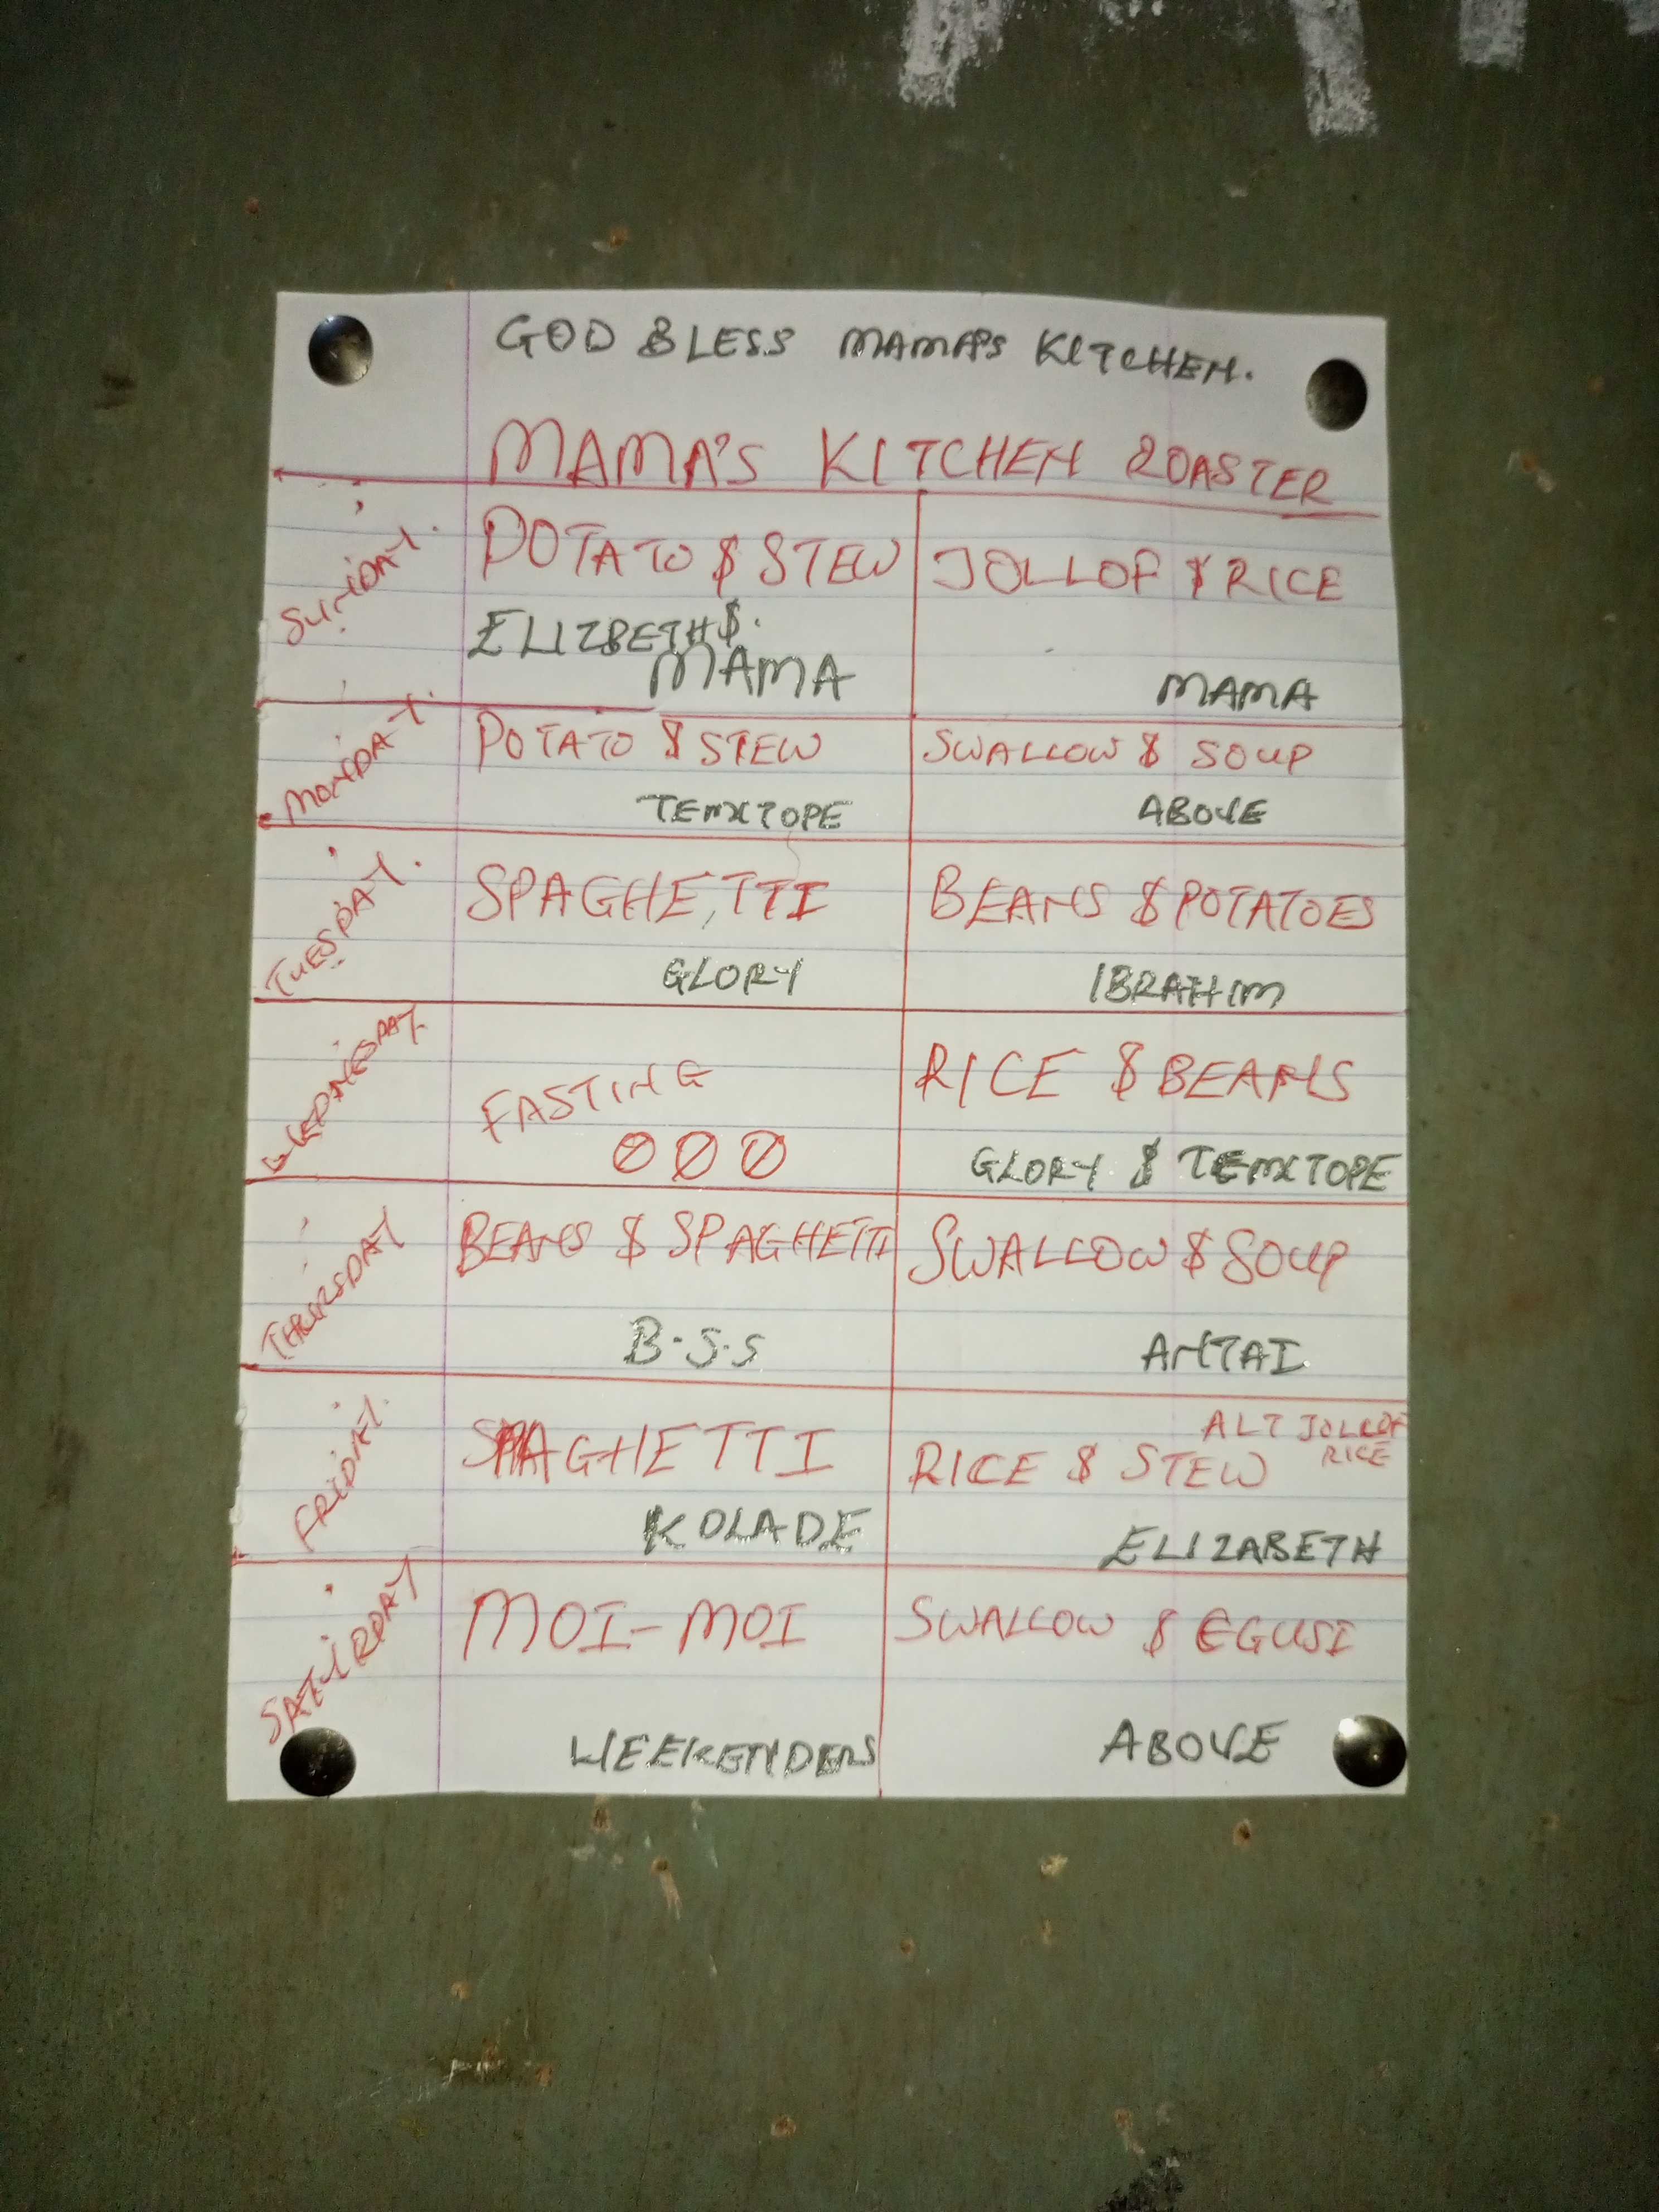 GOD BLESS MAMA'S KITCHEN.
MAMA'S KITCHEN ROASTER
SUNDAY.
POTATO $ STEW
ELIZBETH $.
MAMA
JOLLOF $ RICE
MAMA
MONDAY.
POTATO $ STEW
TEMITOPE
SWALLOW $ SOUP
ABOVE
TUESDAY.
SPAGHETTI
GLORY
BEANS $ POTATOES
IBRAHIM
WEDNESDAY
FASTING
000
RICE $ BEANS
GLORY $ TEMITOPE
THURSDAY
BEANS $ SPAGHETTI
B.S.S
SWALLOW $ SOUP
ANTAI
FRIDAY.
SPAGHETTI
KOLADE
RICE $ STEW
ALT JOLLOF
RICE
ELIZABETH
SATURDAY
MOI-MOI
WEEKENDERS
SWALLOW $ EGUSI
ABOVE